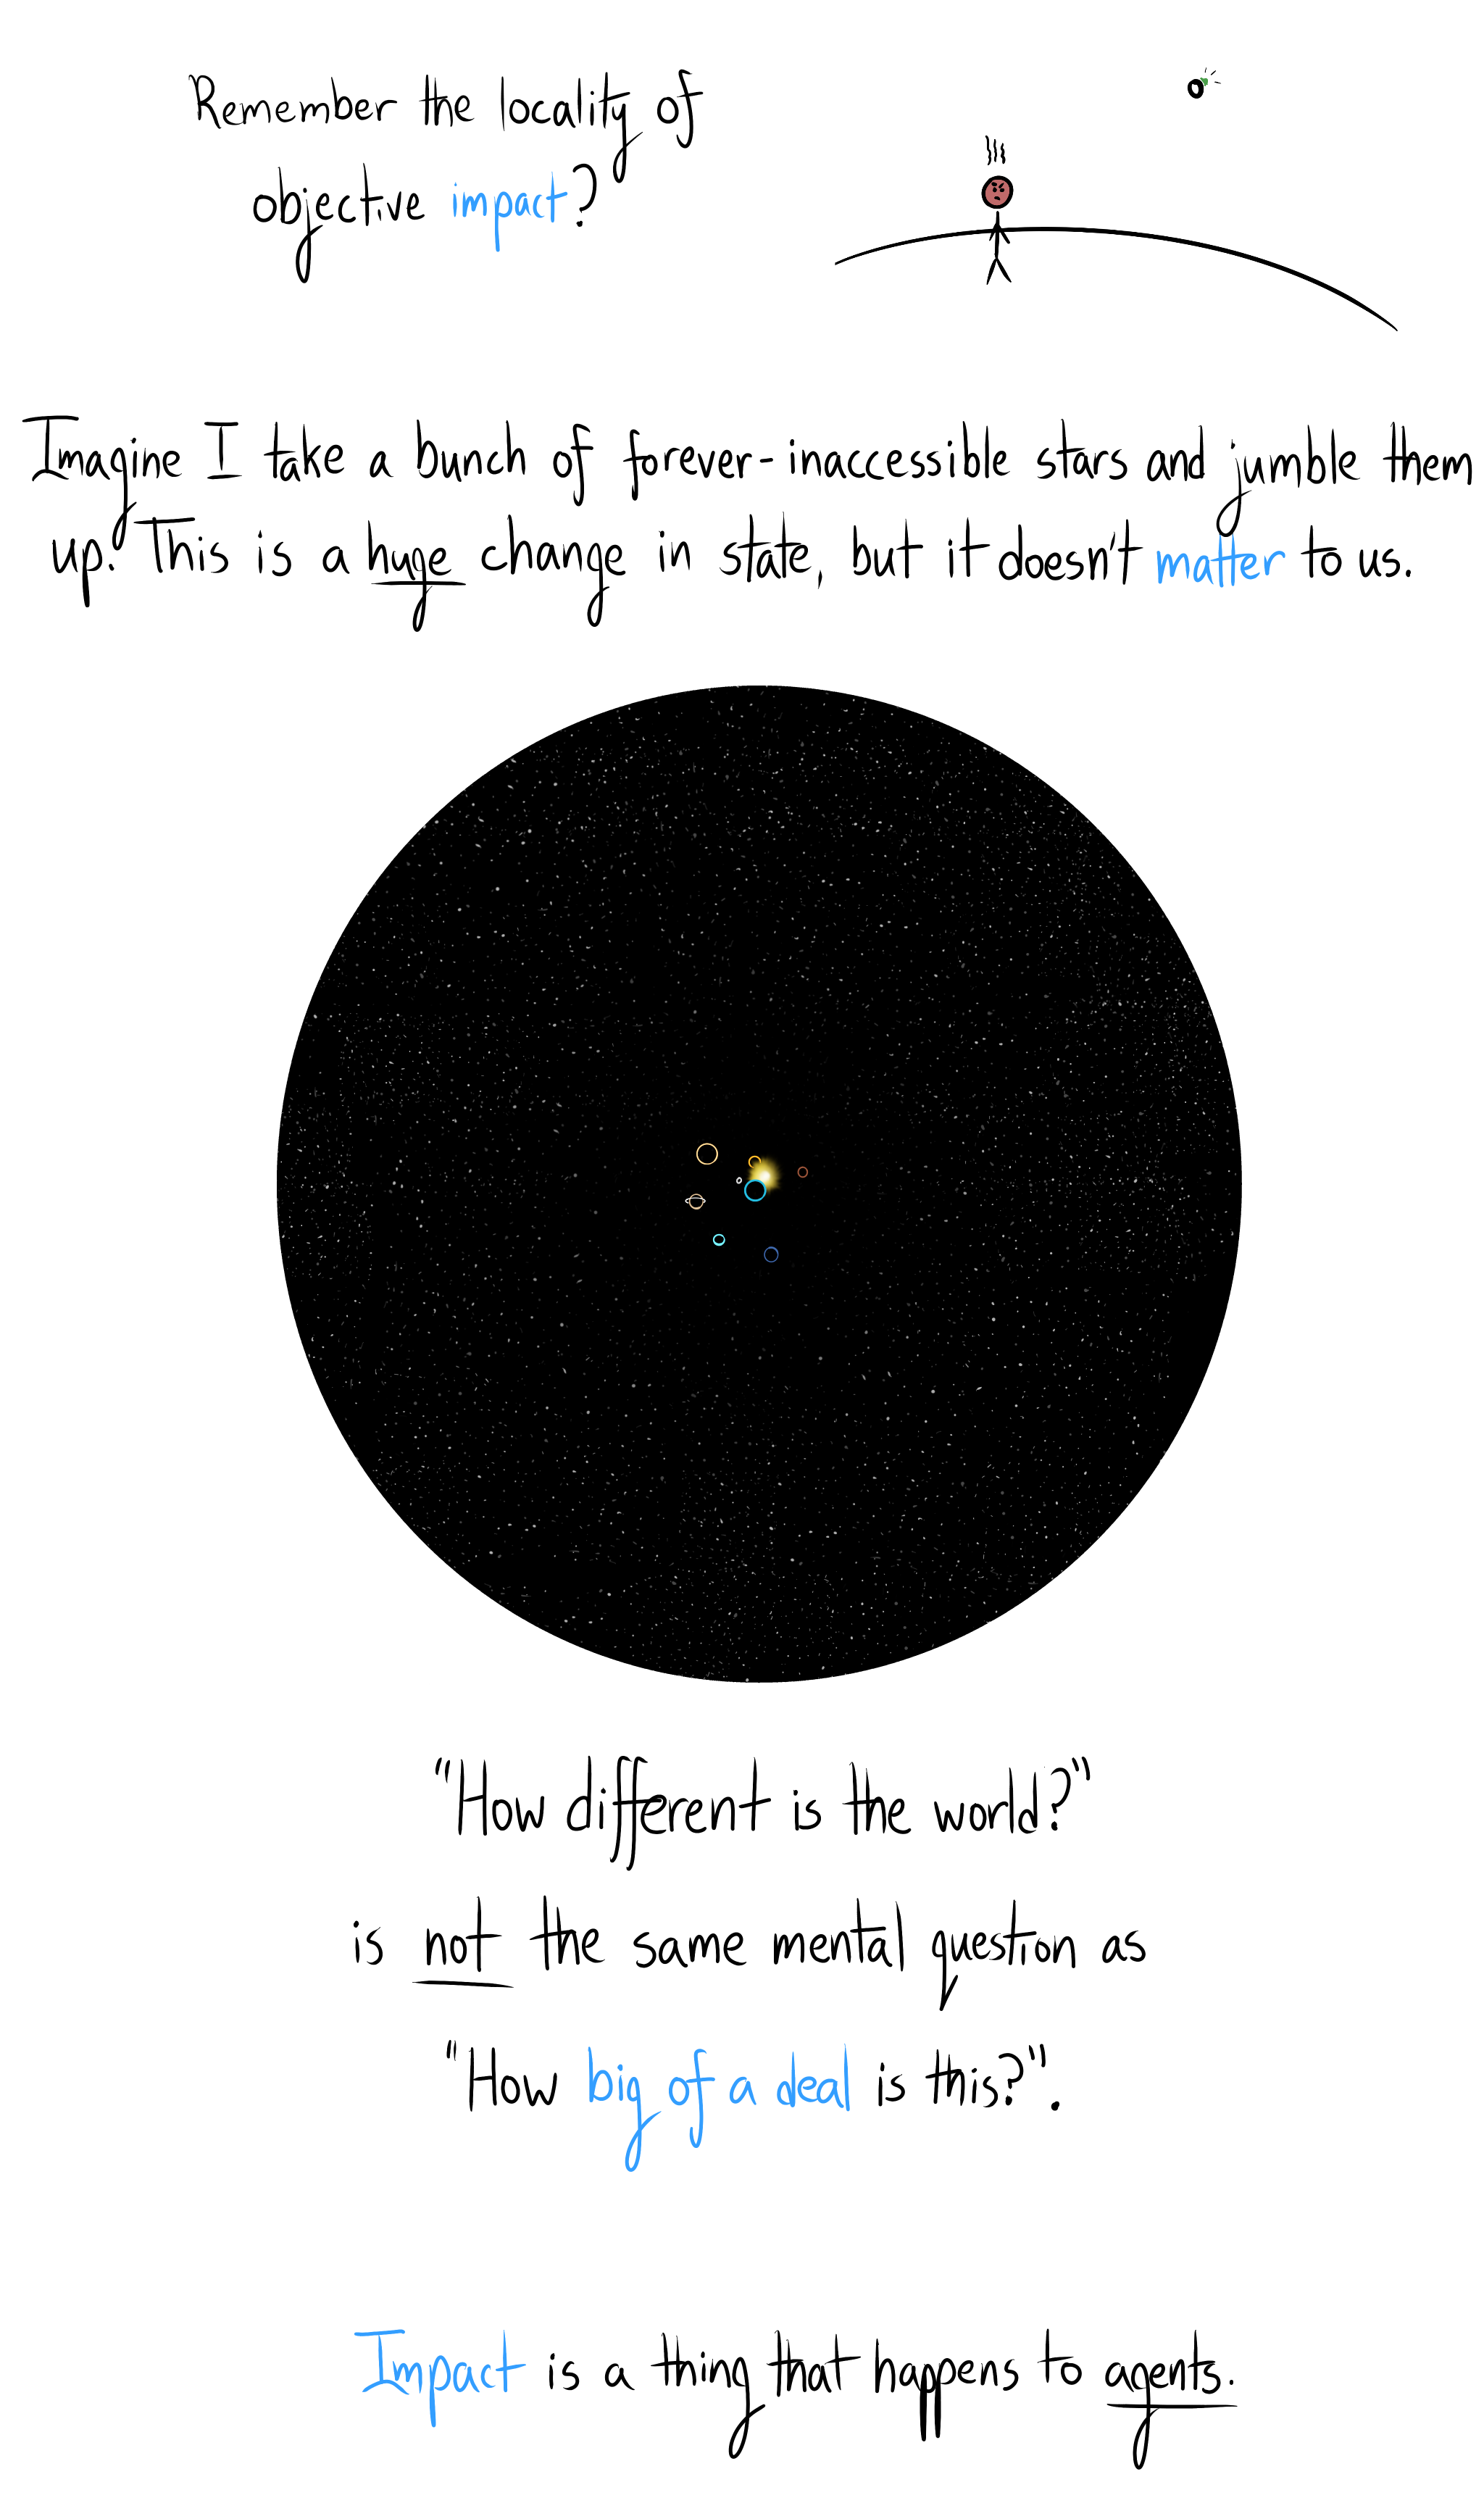 Remember the locality of
objective impact?
Imagine I take a bunch of forever-inaccessible stars and jumble them
up. This is a huge change in state, but it doesn't matter to us.
"How different is the world?"
is not the same mental question as
"How big of a deal is this?".
Impact is a thing that happens to agents.